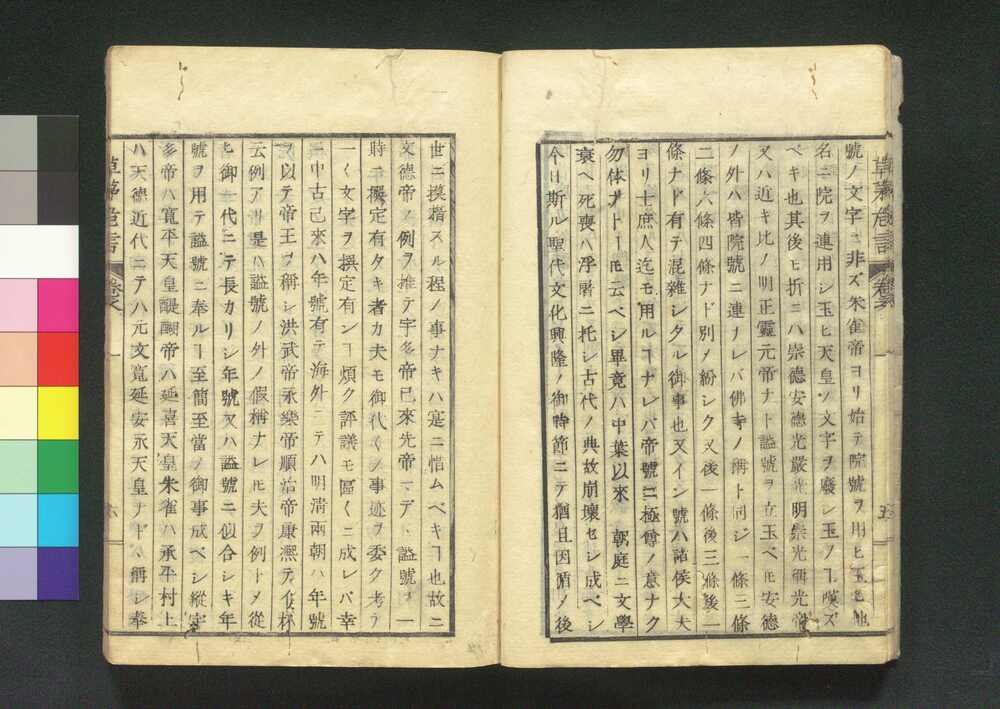 號ノ文字ニ非ズ朱雀帝ヨリ始テ院號ヲ用ヒ玉ヒ他
名ニ院ヲ連用シ玉ヒ天皇ノ文字ヲ廢シ玉フヿ嘆ズ
ベキ也其後ヒ折ニハ崇德安德光嚴光明崇光稱光帝
又ハ近キ比ノ明正靈元帝ナト謚號ヲ立玉ベㇳモ安德
ノ外ハ皆院號ニ連ナレバ佛寺ノ稱ト同ジ一條三條
二條六條四條ナド別メ紛シク又後一條後三條後二
條ナド有テ混雜シタル御事也又イン號ハ諸侯大夫
ヨリ士庶人迄モ用ルヿナレバ帝號ニ極尊ノ意ナク
勿体ナㇳヿㇳモ云ベシ畢竟ハ中葉以來 朝庭ニ文學
衰ヘ死喪ハ浮屠ニ托シ古代ノ典故崩壞セシ成ベシ
今日斯ル聖代文化興隆ノ御時節ニテ猶且因循メ後
草茅危言 卷之一 五
世ニ摸楷スル程ノ事ナキハ寔ニ惜ムベキヿ也故ニ
文德帝ノ例ヲ推テ宇多帝已來先帝マデノ謚號ヲ一
時ニ撰定有タキ者カ夫モ御代〱ノ事迹ヲ委ク考テ
一〱文字ヲ撰定有ンヿ煩ク評議モ區〱ニ成レバ幸
ニ中古已來ハ年號有テ海外ニテハ明淸兩朝ハ年號
ヲ以テ帝王ヲ稱シ洪武帝永樂帝順治帝康凞帝抔
云例アリ是ハ謚號ノ外ノ假稱ナレㇳモ夫ヲ例トメ從
ヒ御一代ニテ長カリシ年號又ハ謚號ニ似合シキ年
號ヲ用テ謚號ニ奉ルヿ至簡至當ノ御事成ベシ縱宇
多帝ハ寬平天皇醍醐帝ハ延喜天皇朱雀ハ承平村上
ハ天德近代ニテハ元文寬延安永天皇ナドㇳ稱シ奉
草茅危言 卷之一 六